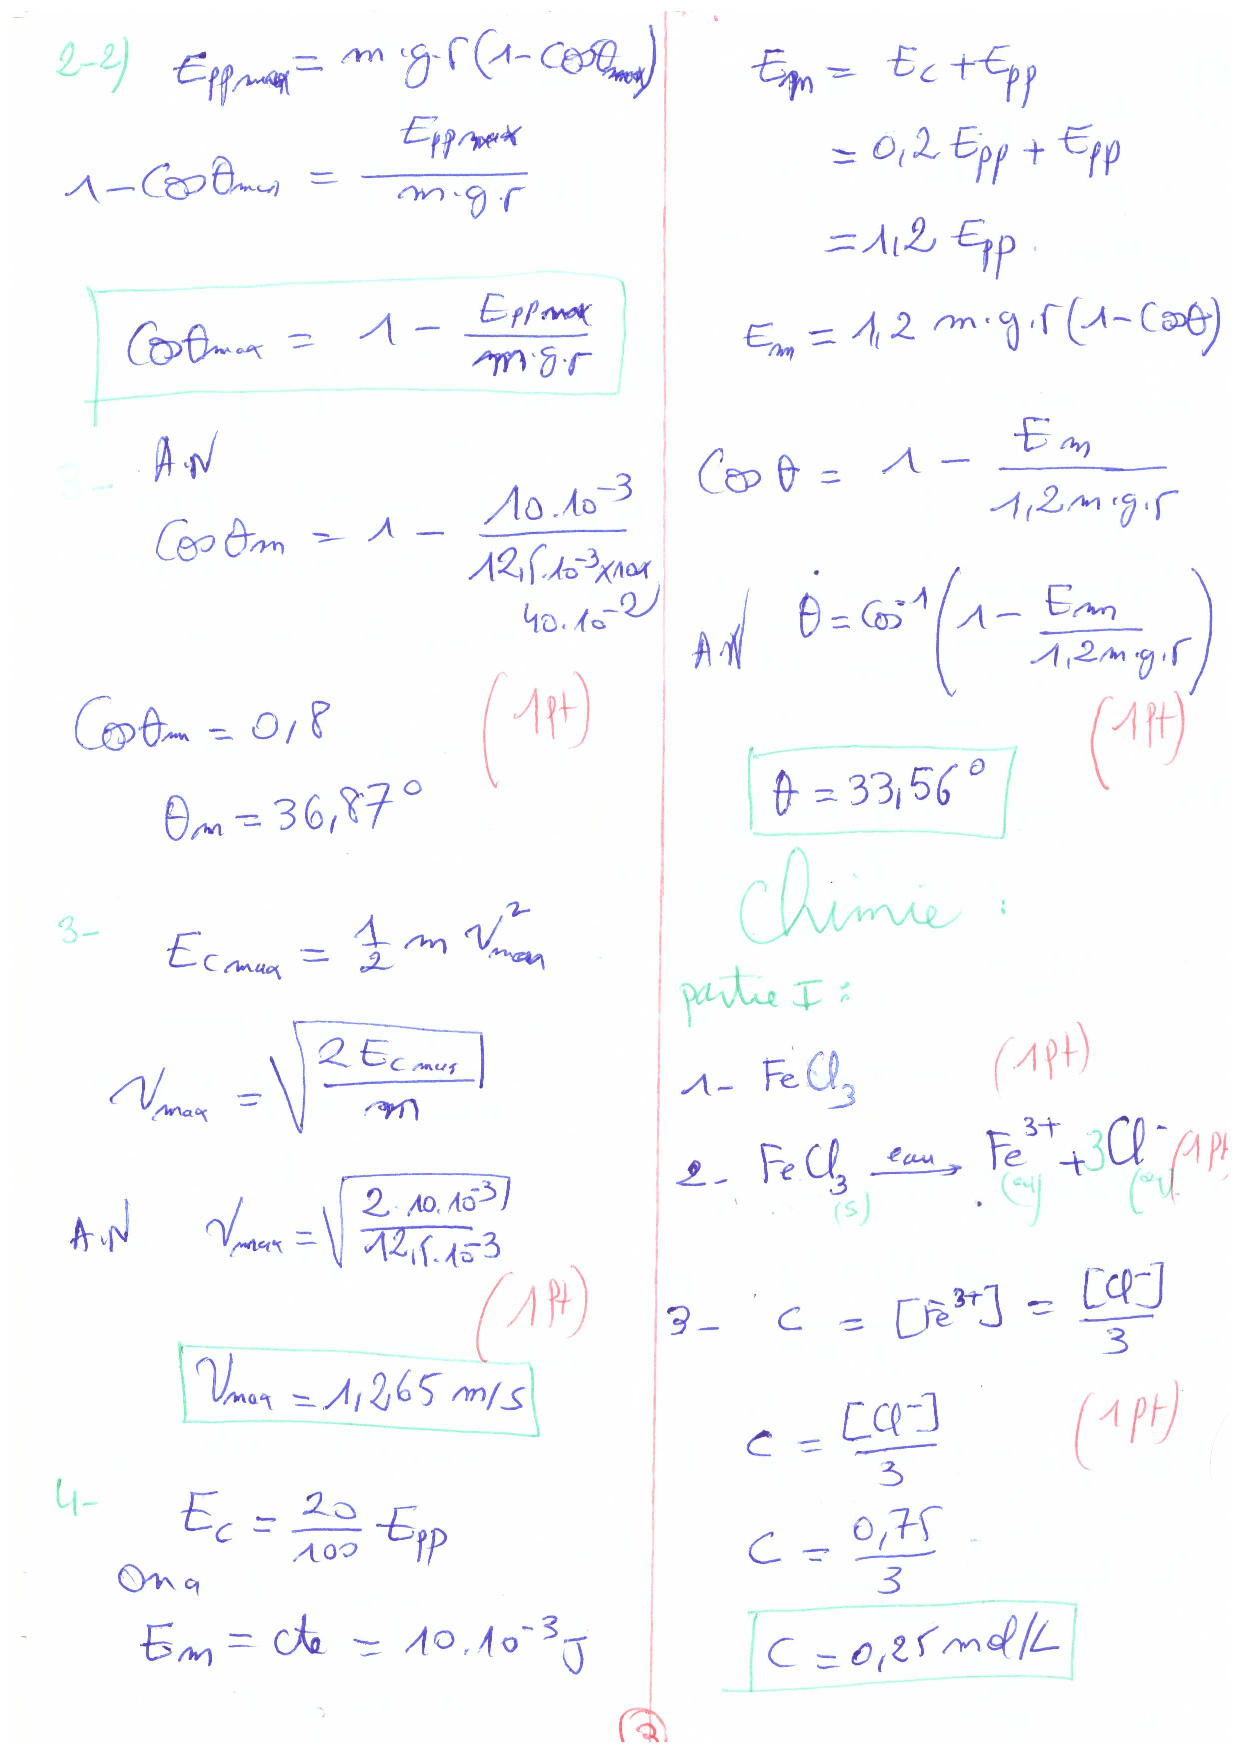 2-2) Eppmax = m.g.r(1-Cosθmax)
1-Cosθmax = Eppmax / m.g.r
Cosθmax = 1 - Eppmax / m.g.r
3-
A.N
Cosθm = 1 - 10.10⁻³ / 12,5.10⁻³×10×
40.10⁻²
Cosθm = 0,8 (1pt)
θm = 36,87°
3- Ecmax = 1/2 m Vmax²
Vmax = √(2 Ecmax / m)
A.N Vmax = √(2.10.10⁻³ / 12,5.10⁻³)
(1Pt)
Vmax = 1,265 m/s
4- Ec = 20/100 Epp
On a
Em = cte = 10.10⁻³ J
Em = Ec + Epp
= 0,2 Epp + Epp
= 1,2 Epp.
Em = 1,2 m.g.r(1-Cosθ)
Cos θ = 1 - Em / 1,2 m.g.r
A.N θ = Cos⁻¹(1 - Em / 1,2 m.g.r)
(1Pt)
θ = 33,56°
Chimie :
partie I :
1- FeCl₃ (1Pt)
2- FeCl₃ (s) —eau→ Fe³⁺ (aq) + 3Cl⁻ (aq) (1Pt
3- C = [Fe³⁺] = [Cl⁻] / 3
C = [Cl⁻] / 3 (1Pt)
C = 0,75 / 3
C = 0,25 mol/L
3